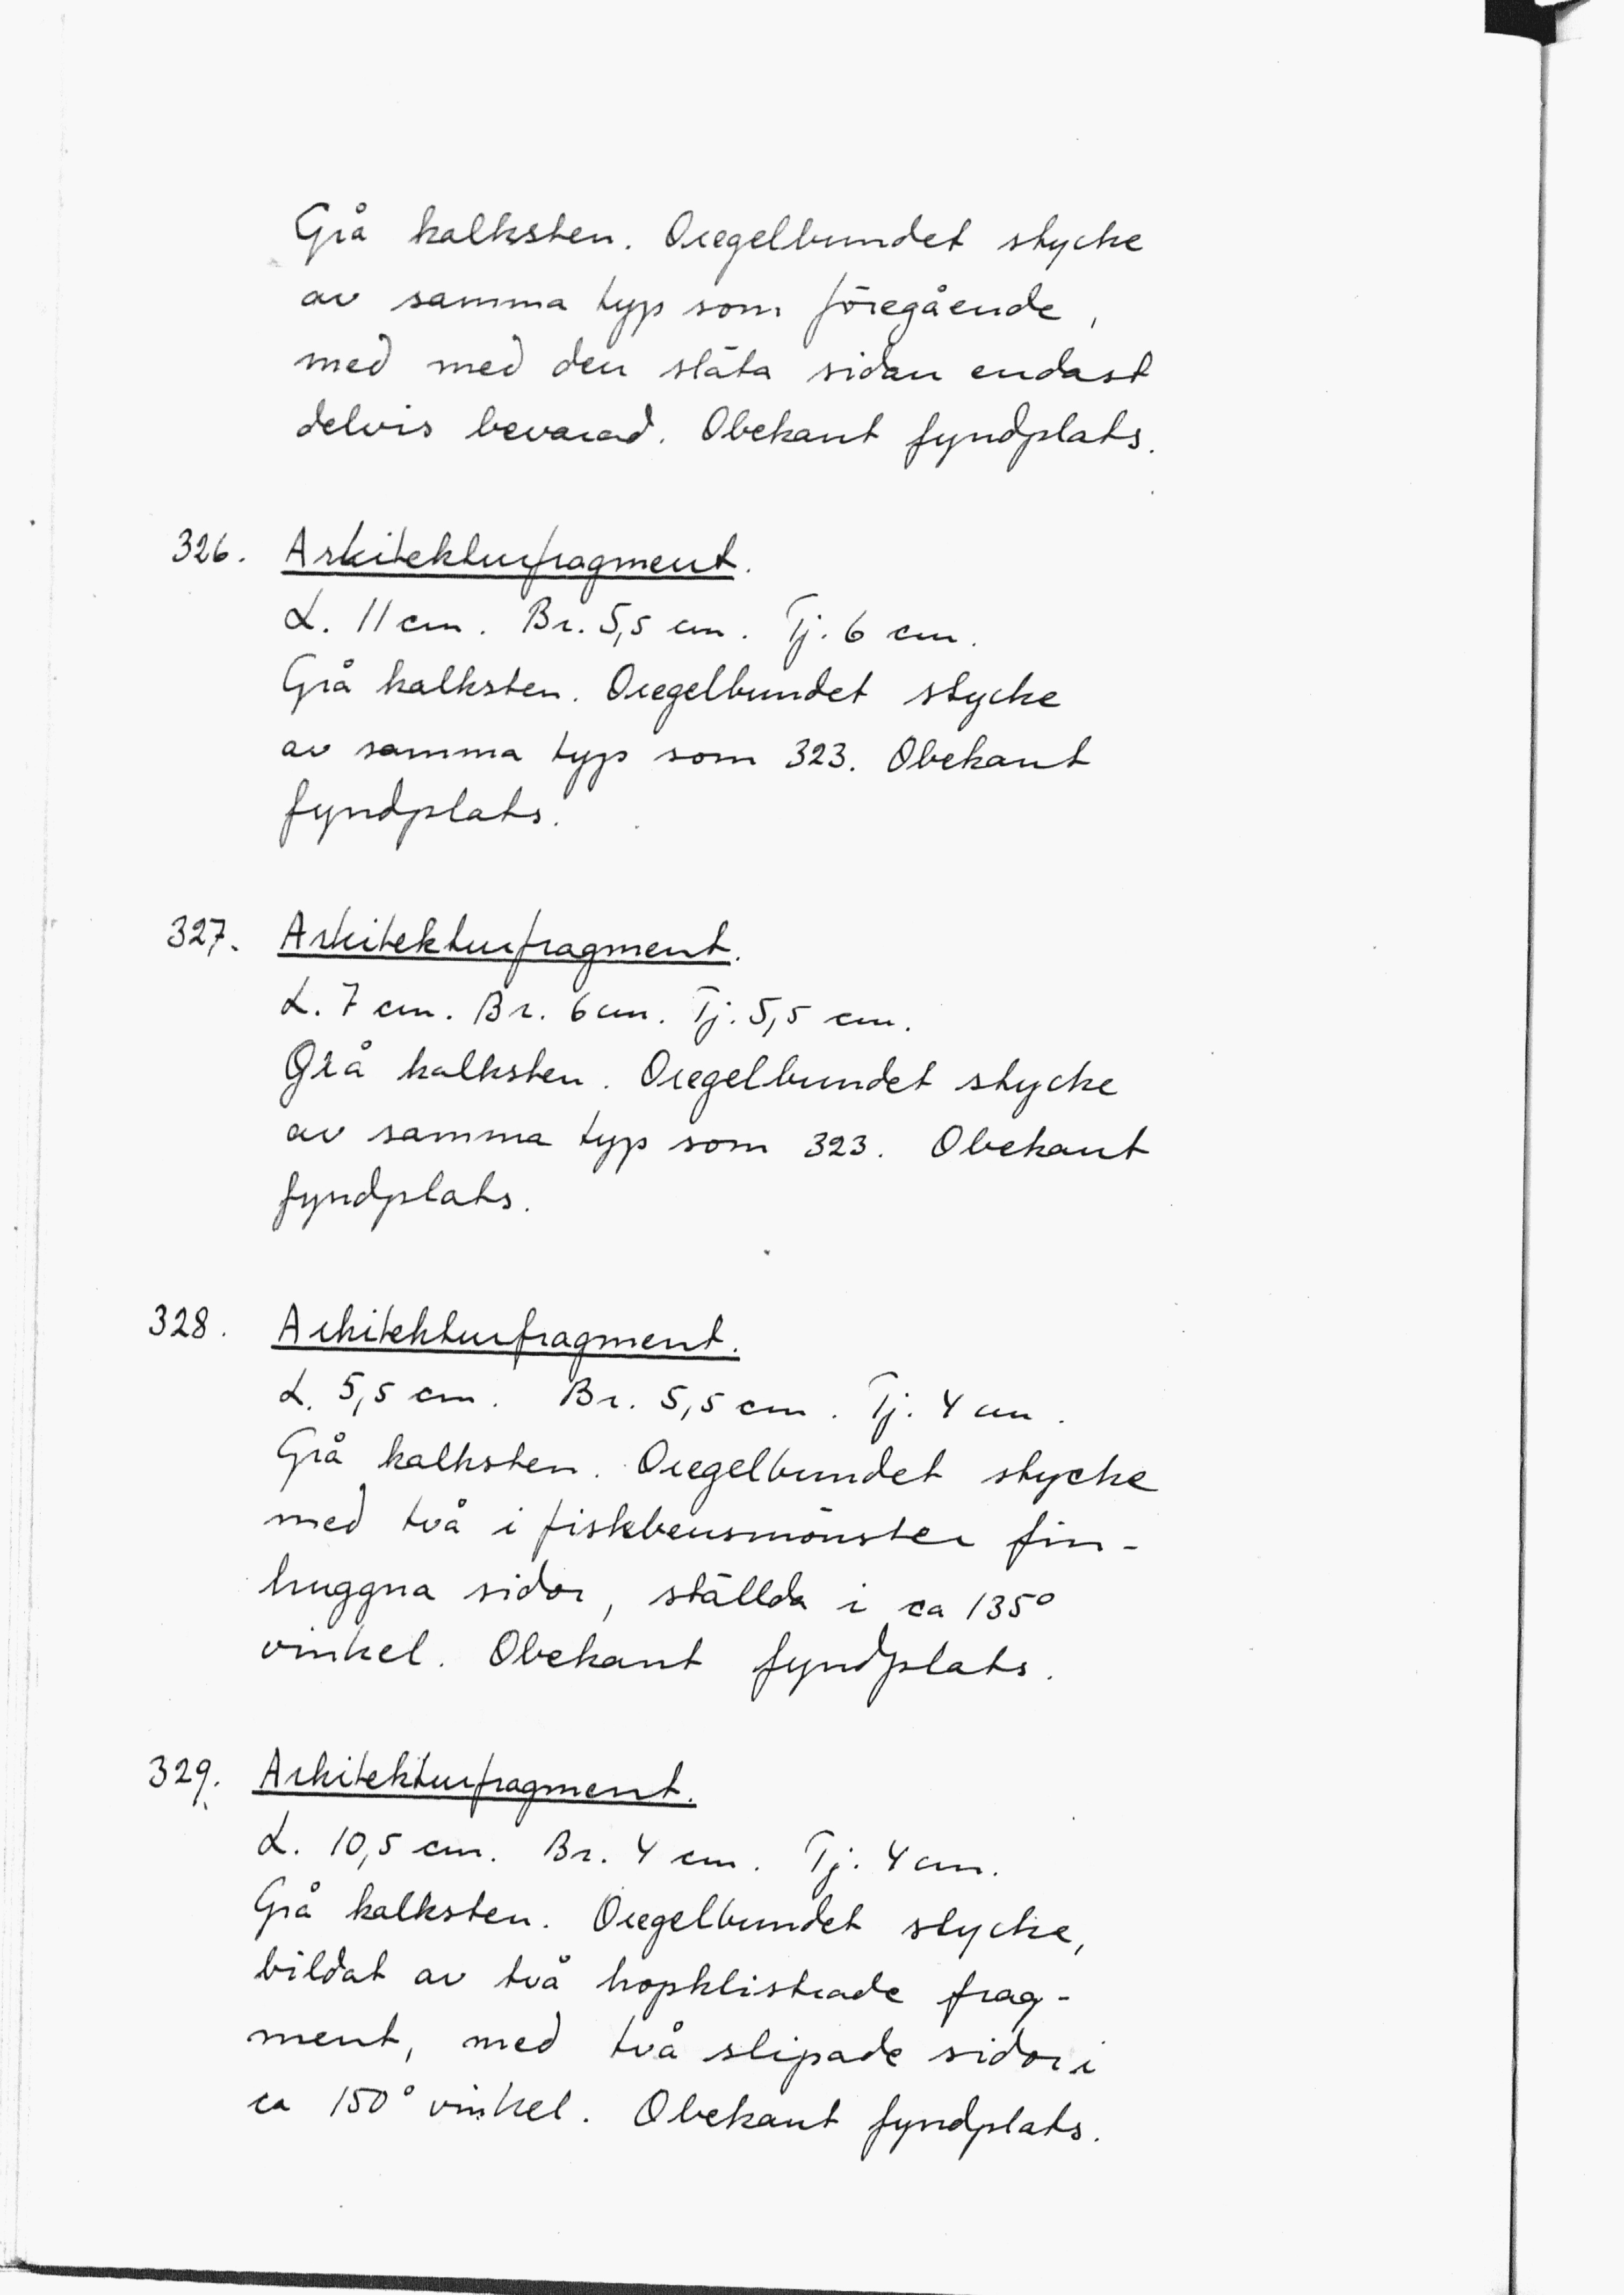 Grå kalksten. Oregelbundet stycke
av samma typ som föregående,
med med den släta sidan endast
delvis bevarad. Obekant fyndplats.
326. Arkitekturfragment.
L. 11 cm. Br. 5,5 cm. Tj. 6 cm.
Grå kalksten. Oregelbundet stycke
av samma typ som 323. Obekant
fyndplats.
327. Arkitekturfragment.
L. 7 cm. Br. 6 cm. Tj. 5,5 cm.
Grå kalksten. Oregelbundet stycke
av samma typ som 323. Obekant
fyndplats.
328. Arkitekturfragment.
L. 5,5 cm. Br. 5,5 cm. Tj. 4 cm.
Grå kalksten. Oregelbundet stycke
med två i fiskbensmönster fin-
huggna sidor, ställda i ca 135°
vinkel. Obekant fyndplats.
329. Arkitekturfragment.
L. 10,5 cm. Br. 4 cm. Tj. 4 cm.
Grå kalksten. Oregelbundet stycke,
bildat av två hopklistrade frag-
ment, med två slipade sidor i
ca 150° vinkel. Obekant fyndplats.